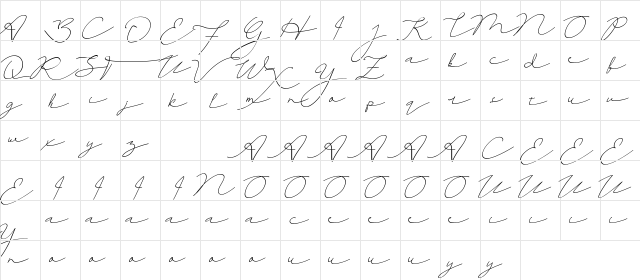 A B C D E F G H I J K L M N O P
Q R S T U V W X Y Z a b c d e f
g h i j k l m n o p q r s t u v
w x y z A A A A A A C E E E
E I I I I N O O O O O O U U U U
Y a a a a a a c e e e e i i i i
n o o o o o u u u u y y